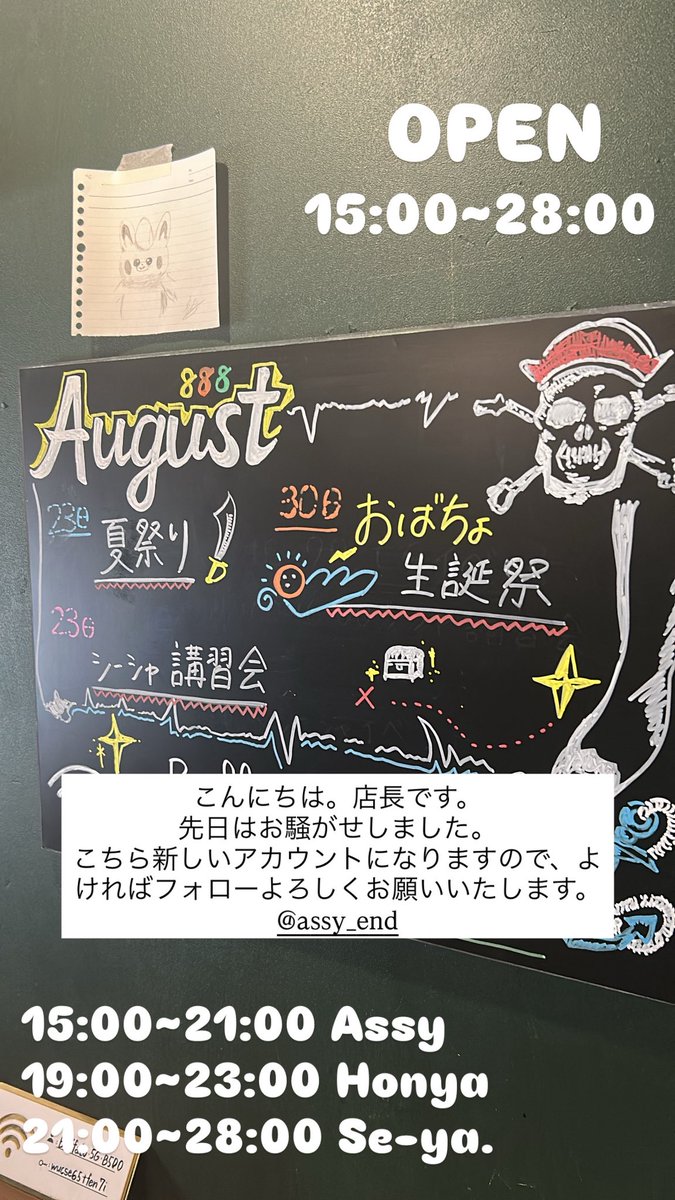 OPEN
15:00~28:00
888
August
23日
夏祭り
30日
おばちょ
生誕祭
23日
シーシャ講習会
こんにちは。店長です。
先日はお騒がせしました。
こちら新しいアカウントになりますので、よ
ければフォローよろしくお願いいたします。
@assy_end
15:00~21:00 Assy
19:00~23:00 Honya
21:00~28:00 Se-ya.